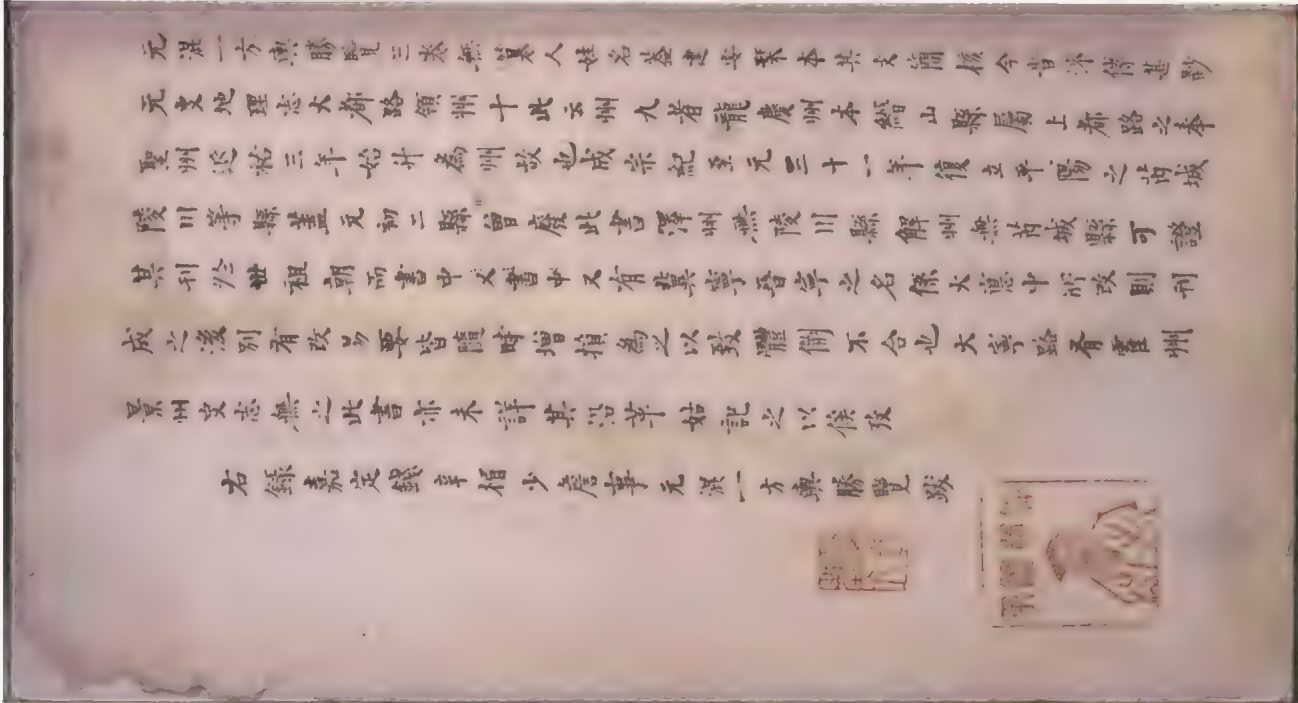 元混一方輿勝覽三卷無篹人姓名蓋建安琹本其文簡核今皆沛傳甚尠
元史地理志大都路領州十此云州九者龍慶州本縉山縣屬上都路之奉
聖州延祐三年始升為州故也成宗紀至元三十一年復立平陽之芮城
陵川等縣蓋元初二縣曽廢此書澤州無陵川縣解州無芮城縣可證
其刊於世祖朝而書中又書中又有冀寧晉寧之名係大德中所改則刊
成之後別有改易要皆隨時增損為之以致體例不合也大寧路有霍州
景州史志無之此書亦未詳其沿革姑記之以俟攷
右錄嘉定錢辛楣少詹事元混一方輿勝覽跋